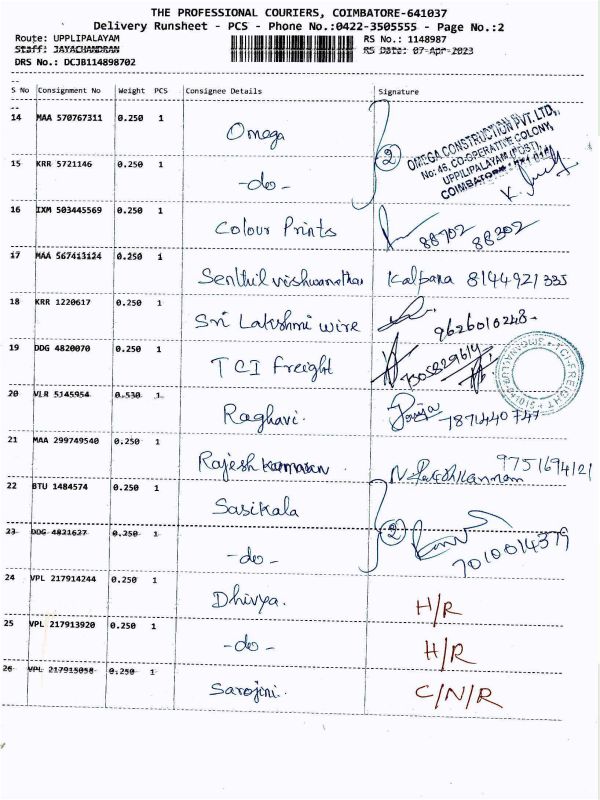 THE PROFESSIONAL COURIERS, COIMBATORE-641037
Delivery Runsheet - PCS - Phone No.:0422-3505555 - Page No.:2
Route: UPPLIPALAYAM RS No.: 1148987
Staff: JAYACHANDRAN RS Date: 07-Apr-2023
DRS No.: DCJB114898702
S No Consignment No Weight PCS Consignee Details Signature
14 MAA 570767311 0.250 1 Omega 2
OMEGA CONSTRUCTION PVT. LTD.,
No: 46, CO-OPERATIVE COLONY,
UPPILIPALAYAM (POST),
COIMBATORE
15 KRR 5721146 0.250 1 -do-
16 IXM 503445569 0.250 1 Colour Prints 88702 88302
17 MAA 567413124 0.250 1 Senthil vishwanathan Kalpana 8144921335
18 KRR 1220617 0.250 1 Sri Lakshmi wire 9626010248-
19 DDG 4820070 0.250 1 TCI Freight
TCI-FREIGHT
20 VLR 5145954 0.530 1 Raghavi. 7871440747
21 MAA 299749540 0.250 1 Rajesh kannan. 9751694121
22 BTU 1484574 0.250 1 Sasikala 2
23 DDG 4821627 0.250 1 -do- 7010014379
24 VPL 217914244 0.250 1 Dhivya. H/R
25 VPL 217913920 0.250 1 -do- H/R
26 VPL 217915058 0.250 1 Sarojini. C/N/R